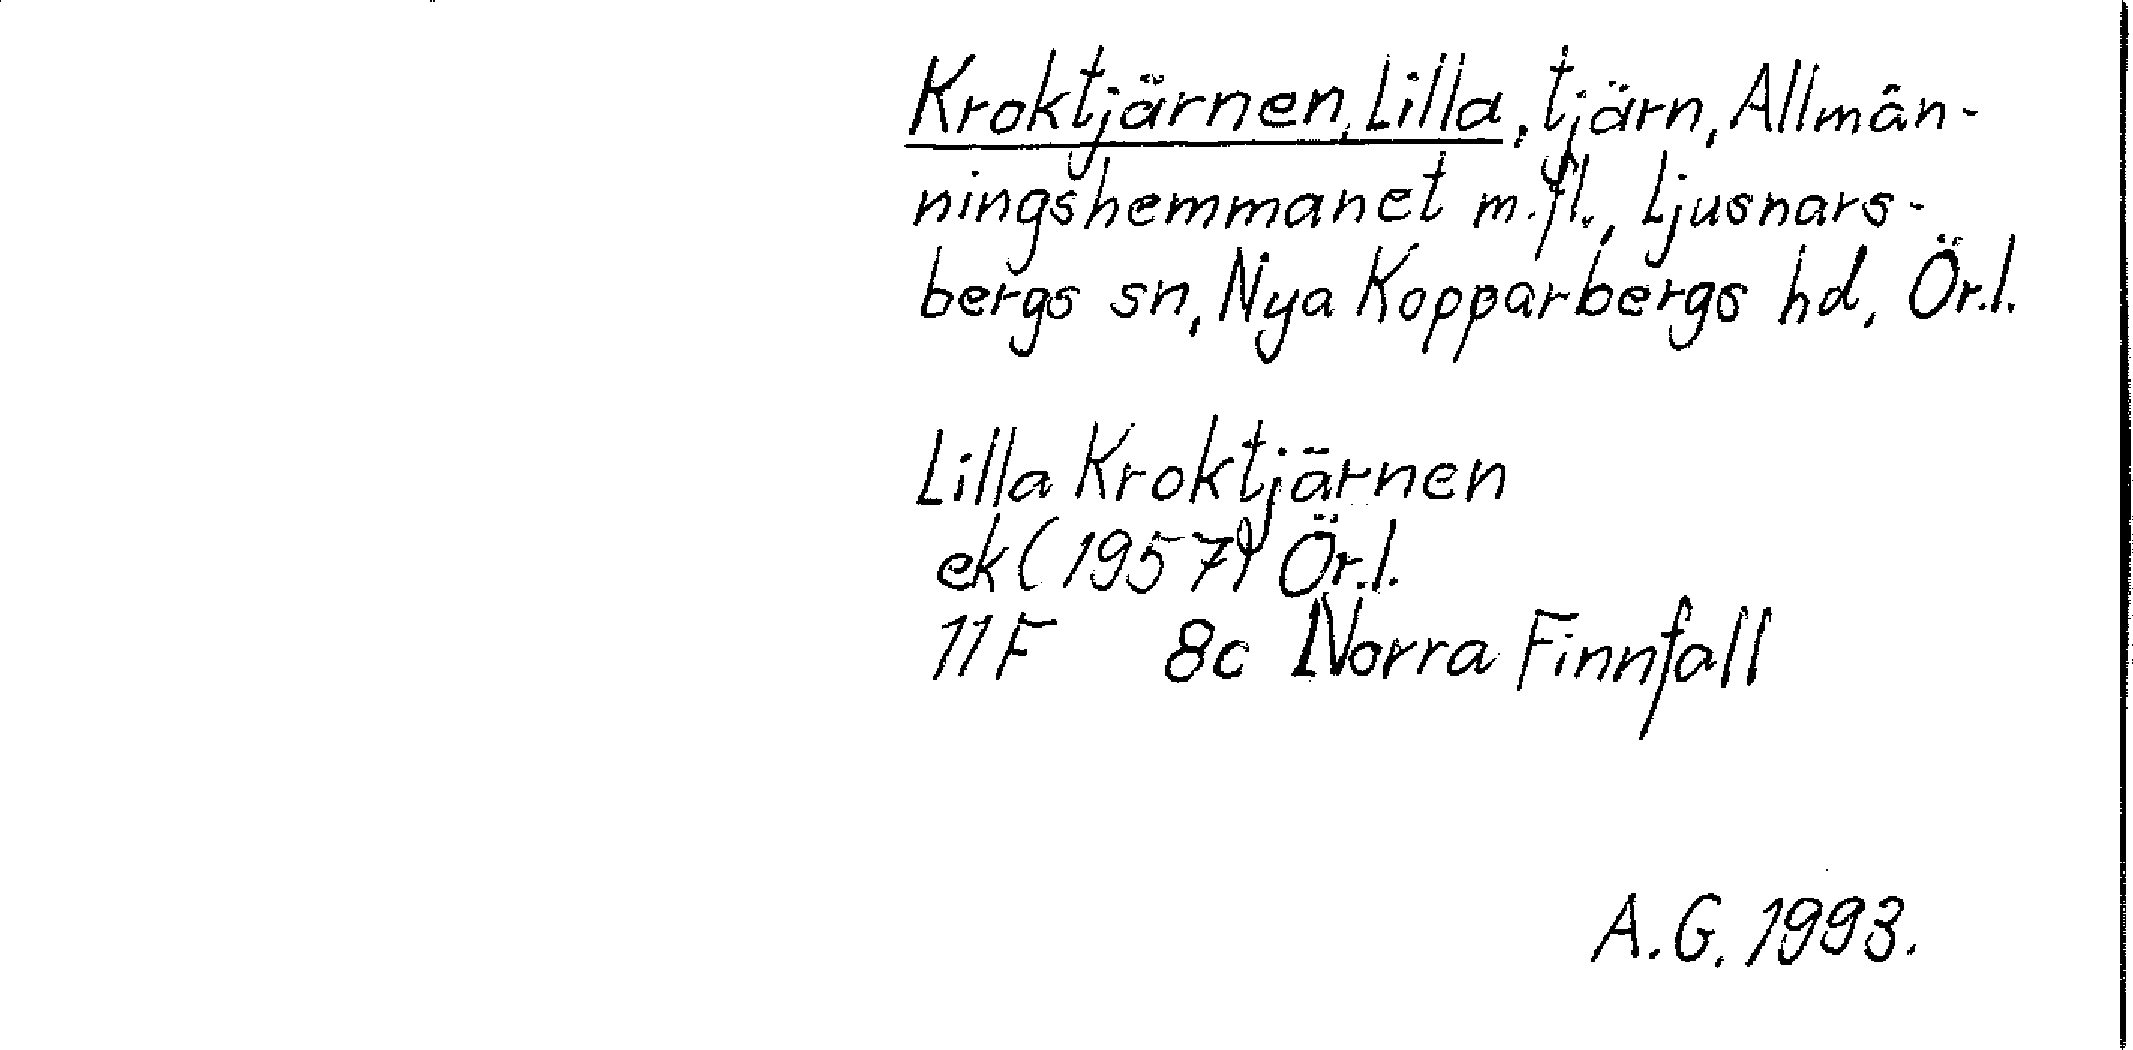 Kroktjärnen, Lilla, tjärn, Allmän-
ningshemmanet m.fl., Ljusnars-
bergs sn, Nya Kopparbergs hd, Ör.l.
Lilla Kroktjärnen
ek (1957) Ör.l.
11F 8c Norra Finnfall
A.G. 1993.